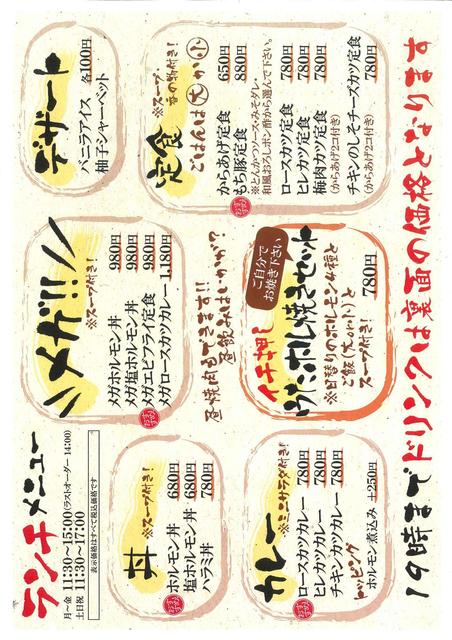 ランチメニュー
月～金 11:30～15:00(ラストオーダー 14:00)
土日祝 11:30～17:00
表示価格はすべて税込価格です
丼
※スープ付き!
おすすめ
ホルモン丼 680円
塩ホルモン丼 680円
ハラミ丼 780円
カレー
※ミニサラダ付き!
おすすめ
ロースカツカレー 780円
ヒレカツカレー 780円
チキンカツカレー 780円
トッピング
ホルモン煮込み +250円
メガ!!
※スープ付き!
メガホルモン丼 980円
メガ塩ホルモン丼 980円
メガエビフライ定食 980円
おすすめ
メガロースカツカレー 1,180円
昼焼肉もできます!!
昼飲みはいかが?
イチ押し
ご自分で
お焼き下さい
ホルモン焼きセット
※日替りのホルモン4種と
ご飯(大or小)と
スープ付き!
780円
デザート
バニラアイス 各100円
柚子シャーベット
定食
※スープ
香の物付き!
ごはんは大か小
からあげ定食 650円
おすすめ
もち豚定食 880円
※とんかつソース・みそダレ・
和風おろしポン酢から選んで下さい。
ロースカツ定食 780円
ヒレカツ定食 780円
梅肉カツ定食 780円
(からあげ2コ付き)
チキンのしそチーズカツ定食
(からあげ2コ付き) 780円
19時までドリンクは裏面の価格となります